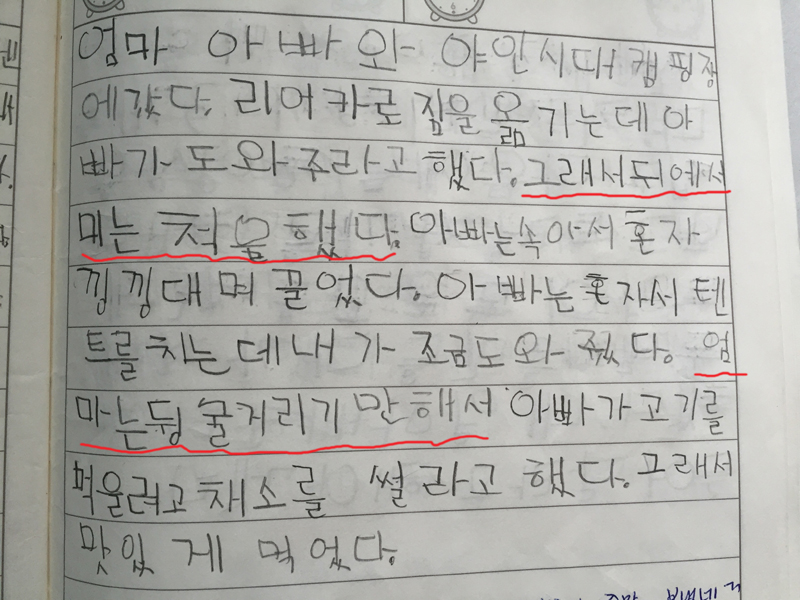 엄마 아빠와 야인시대 캠핑장
에갔다. 리어카로 짐을 옮기는데 아
빠가 도와주라고 했다. 그래서뒤에서
미는 척을 했다. 아빠는속아서 혼자
낑낑대며 끌었다. 아빠는 혼자서 텐
트를 치는데 내가 조금도와 줬다. 엄
마는뒹굴거리기만해서 아빠가고기를
먹을려고 채소를 썰라고 했다. 그래서
맛있게 먹었다.